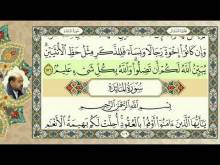 وَإِن كَانُوٓا۟ إِخْوَةً رِّجَالًا وَنِسَآءً فَلِلذَّكَرِ مِثْلُ حَظِّ ٱلْأُنثَيَيْنِ
يُبَيِّنُ ٱللَّهُ لَكُمْ أَن تَضِلُّوا۟ وَٱللَّهُ بِكُلِّ شَىْءٍ عَلِيمٌ ١٧٦
سُورَةُ المَائِدَةِ
بِسْمِ ٱللَّهِ ٱلرَّحْمَٰنِ ٱلرَّحِيمِ
يَٰٓأَيُّهَا ٱلَّذِينَ ءَامَنُوٓا۟ أَوْفُوا۟ بِٱلْعُقُودِ أُحِلَّتْ لَكُم بَهِيمَةُ